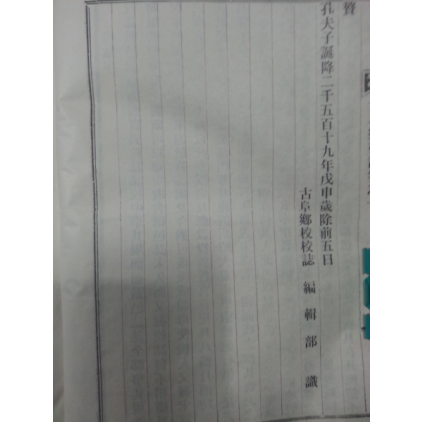 孔夫子誕降二千五百十九年戊申歲除前五日
古阜鄉校校誌 編輯部 識